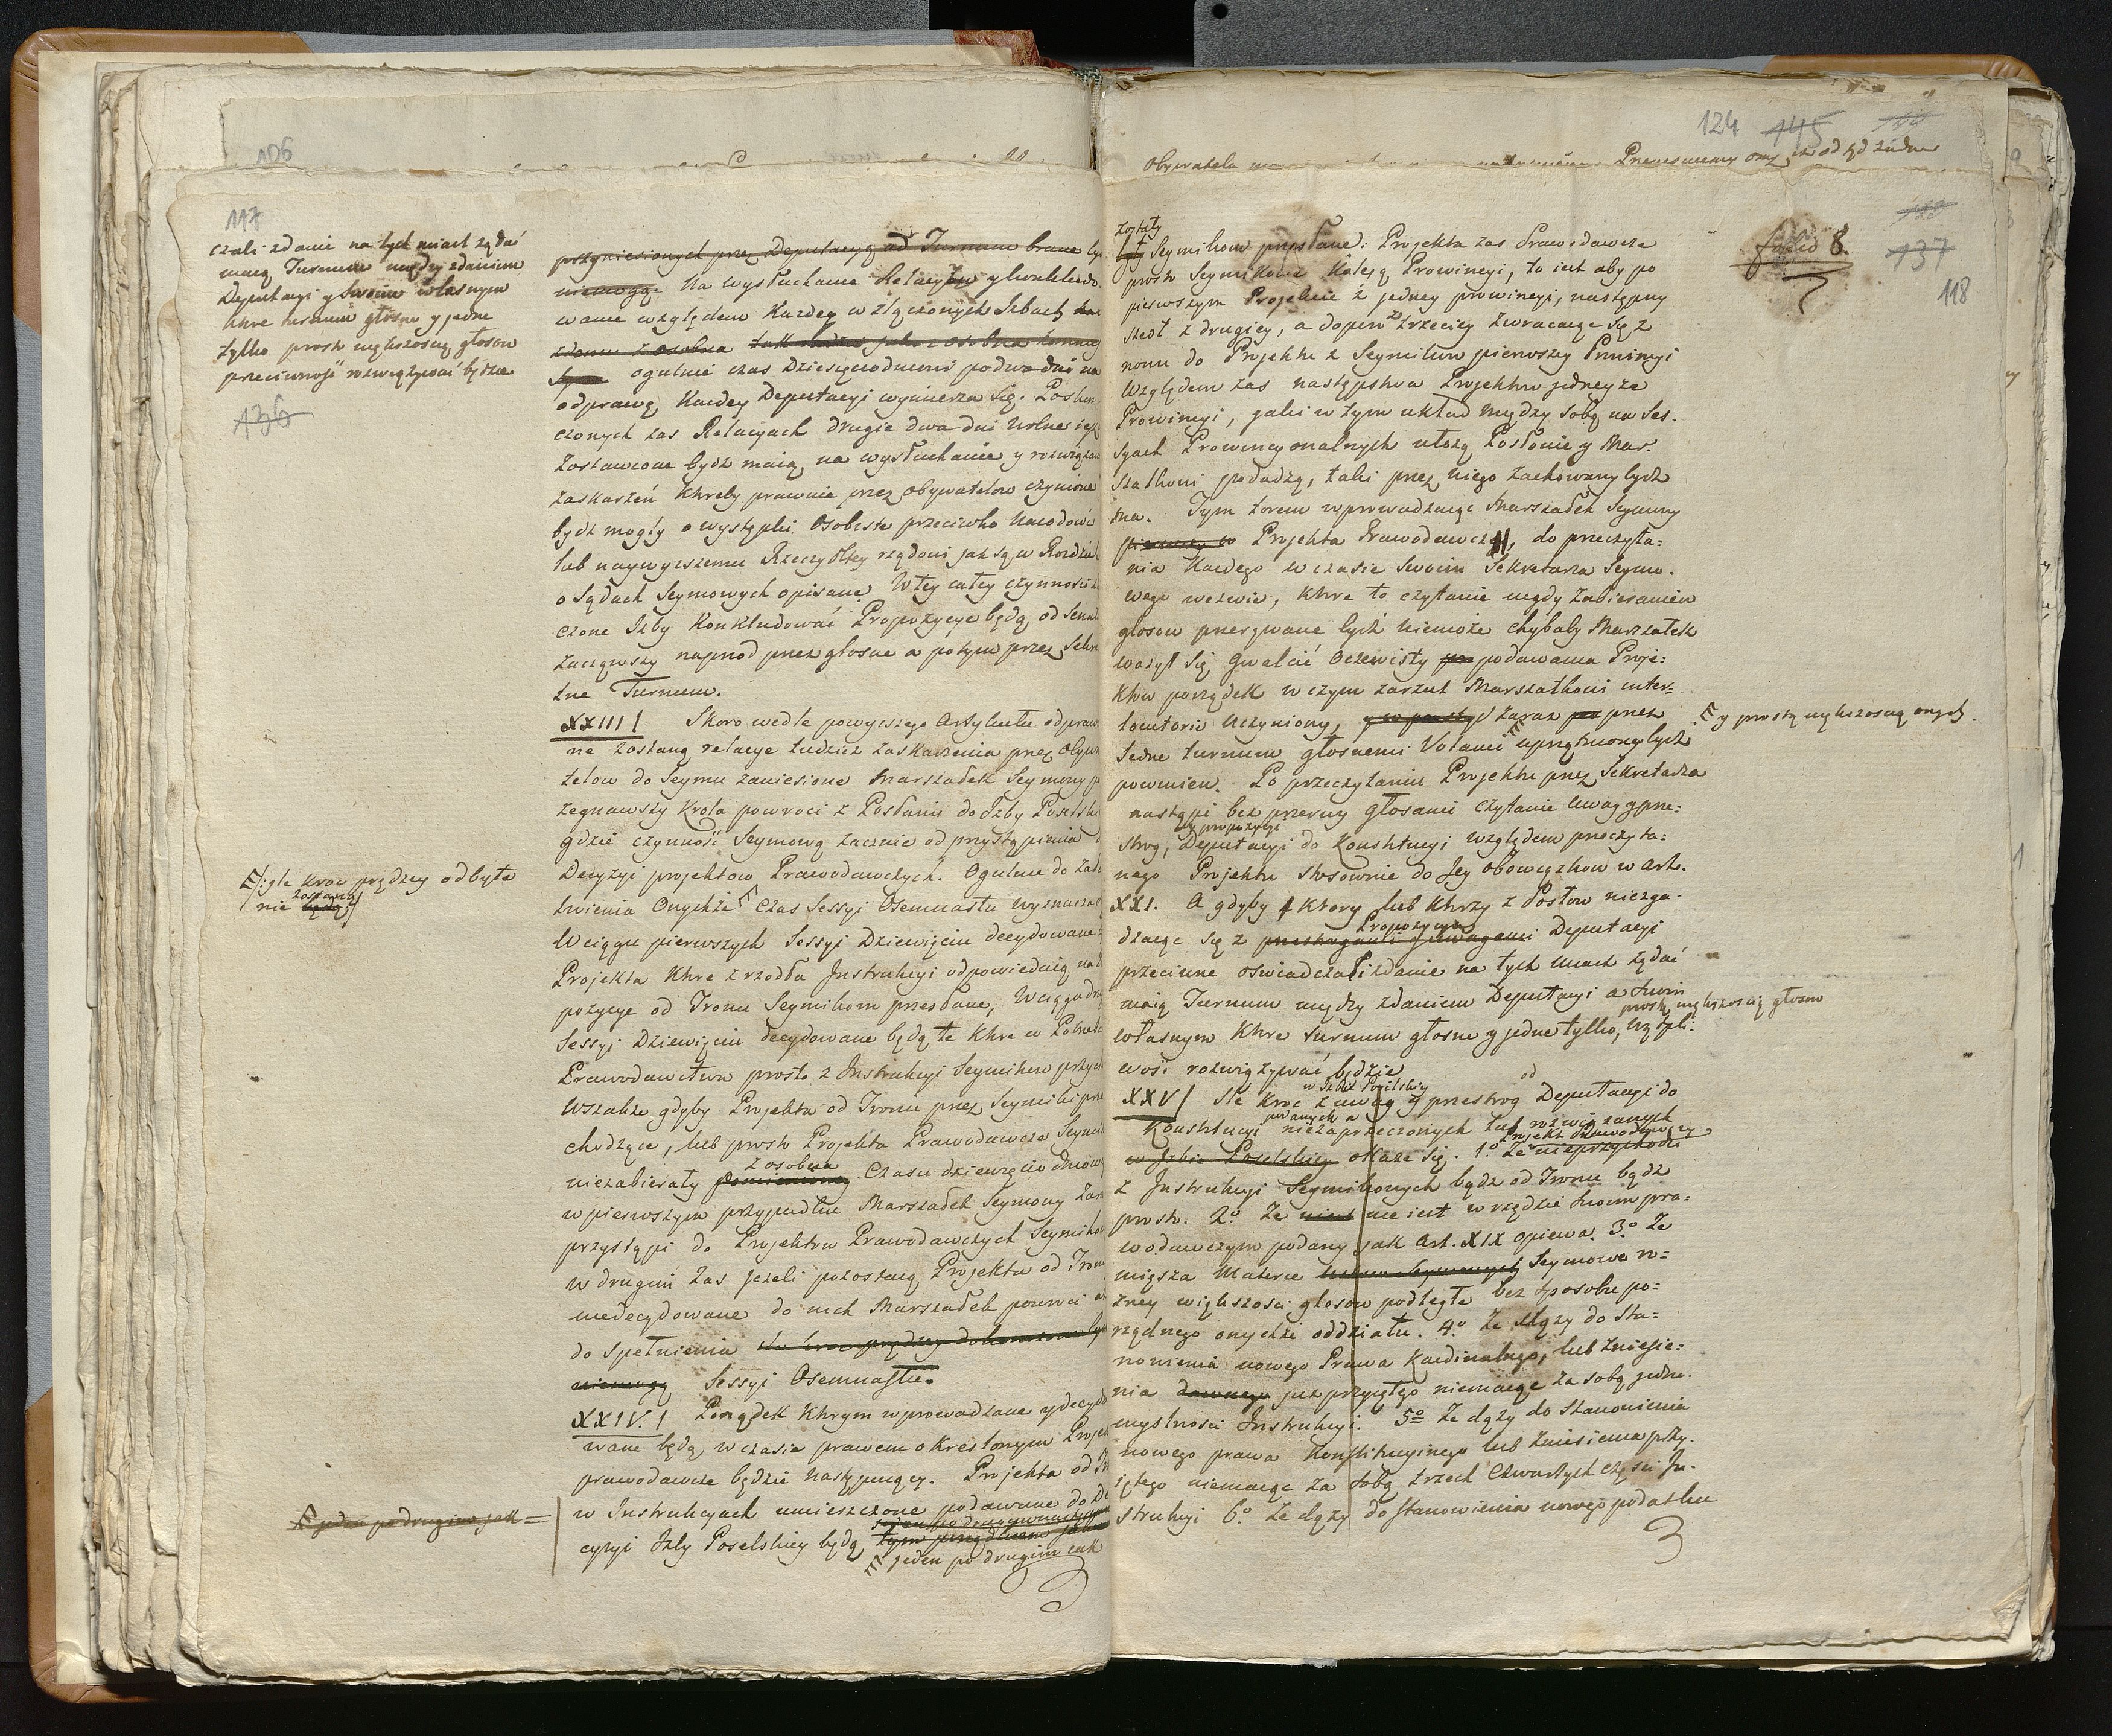 106
117
czali zdanie na tych miast żądać
maią Turnum między zdaniem
Deputacyi y Swoim własnym
ktore turnum głosne y jedne
tylko prosto większoscią głosow
przeciwność rozwiązywać będzie
136
przyniesionych przez Deputacyą od Turnum brane
niemogą. Na wysłuchanie Relacyow y kwitto
wanie względem Kazdey w złączonych Izbach
z osobna
ogulnie czas Dziesięciodniowy po dwa dni na
odprawę Kazdey Deputacyi wymierza się. Po
czonych zas Relacyach drugie dwa dni Wolne
Zostawione bydz maią na wysłuchanie y rozwiązan
zaskarzeń ktoreby prawnie przez Obywatelow czynione
bydz mogły o występki Osobiste przeciwko Narodowi
lub naywyzszemu Rzeczyplitey rządowi jak są w Rozdzia
o Sądach Seymowych opisane. W tey całey czynnosci
czone Izby Konkludować Propozycye będą od Sena
zacząwszy naprzod przez głosne a potym przez Sekre
tne Turnum.
XXIII Skoro wedle powyzszego Artykułu odpraw
ne zostaną relacye tudzież zaskarzenia przez Obywa
telow do Seymu zaniesione Marszałek Seymowy
zegnawszy Krola powroci z Posłami do Izby Poselski
gdzie czynność Seymową zacznie od przystąpienia
Decyzyi projektow Prawodawczych. Ogulnie do zała
twienia Onychże czas Sessyi Osiemnastu wyznacza
W ciągu pierwszych Sessyi Dziewięciu decydowane
Projekta ktore z rzodła Instrukcyi odpowiedaią na
pozycye od Tronu Seymikom przesłane, W ciągu dru
Sessyi Dziewięciu decydowane będą te ktore w
Prawodawctwa prosto z Instrukcyi Seymikow przych
Wszakże gdyby Projekta od Tronu przez Seymiki prze
chodzące, lub prosto Projekta Prawodawcze Seym
z osobna
niezabierały Czasu dziewięciu dniow
w pierwszym przypadku Marszałek Seymowy zar
przystąpi do Projektow Prawodawczych Seymikow
w drugim zas jezeli pozostaną Projekta od Tronu
niedecydowane do nich Marszałek powroci
do spełnienia
niemogą Sessyi Osiemnastu.
/:ile kroc prędzey odbyte
zostaną
nie będą:/
XXIV. Porządek ktorym wprowadzane y decydo
wane będą w czasie prawem okreslonym Projek
prawodawcze będzie następuiący. Projekta od
w Instrukcyach umieszczone podawane do De
cyzyi Izby Poselskiey będą tym porządkiem jako
jeden po drugim jak
jeden po drugim jak =
124 145
Obywatela Przenosimy oraz, iz odtąd żadne
folio 8.
137
118
zostały
były Seymikom przysłane: Projekta zas Prawodawcze
prosto Seymikowe Koleją Prowincyi, to iest aby po
pierwszym Projekcie z jedney prowincyi, następny
szedł z drugiey, a dopiero z trzeciey zwracaiąc się z
nowu do Projektu z Seymikow pierwszey Prowincyi
Względem zas następstwa Projektow jedneyze
Prowincyi, jaki w tym układ między sobą na Ses.
syach Prowincyonalnych ułożą Posłowie y Mar.
szałkowi podadzą, taki przez niego zachowany bydz
ma. Tym torem wprowadzaiąc Marszałek Seymowy
pierwszy Projekta Prawodawcze, do przeczyta=
nia Kazdego w czasie Swoim Sekretarza Seymo.
wego wezwie, ktore to czytanie nigdy zabieraniem
głosow przerywane bydz niemoże chybaby Marszałek
ważył się gwałcić Oczewisty podawania Proje=
ktow porządek w czym zarzut Marszałkowi inter=
locutorie Uczyniony, zaraz przez
jedne turnum głosnemi Votami uprzątniony bydz
y prostą większoscią onych.
powinien. Po przeczytaniu Projektu przez Sekretarza
nastąpi bez przerwy głosami czytanie Uwag y prze=
y propozycyi
strog, Deputacyi do Konstytucyi względem przeczyta=
nego Projektu stosownie do Jey obowiązkow w Art.
XXI. A gdyby ktory lub ktorzy z Posłow niezga.
Propozycyą
dzaiąc się z przestrogami y uwagami Deputacyi
przeciwne oswiadczali zdanie na tych miast żądać
maią Turnum między zdaniem Deputacyi a Swoim
prostą większoscią głosow
własnym ktore turnum głosne y jedne tylko, wątpli=
wość rozwiązywać będzie
w Izbie Poselskiey od
XXV Ile kroc z uwag y przestrog Deputacyi do
podanych a
Konstytucyi niezaprzeczonych lub rozwiązanych
Projekt Prawodawczy
w Izbie Poselskiey okaże się. 1.o Że nieprzychodzi
z Instrukcyi Seymikowych bądz od Tronu bądz
prosto. 2.o Że nie iest w rzędzie swoim pra=
wodawczym podany jak Art. XIX opiewa. 3.o Że
mięsza Materie Seymowe ro=
żney większosci głosow podległe bez sposobu po=
rządnego onychże oddziału. 4.o Że dąży do Sta=
nowienia nowego Prawa Kardinalnego, lub zniesie=
nia dawnego juz przyiętego niemaiąc za sobą jedno.
myslnosci Instrukcyi. 5.o Że dąży do Stanowienia
nowego prawa Konstitucyinego lub zniesienia przy.
iętego niemaiąc za sobą trzech Czwartych części In.
strukcyi 6.o Że dąży do Stanowienia nowego podatku